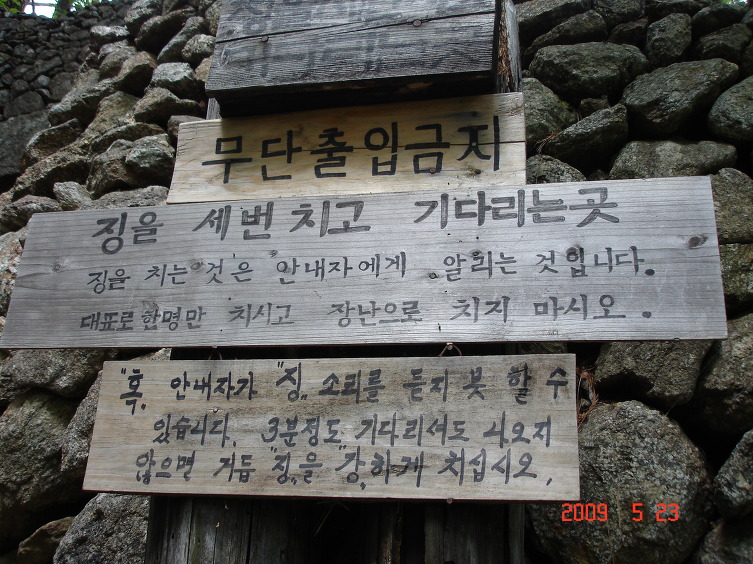 무단출입금지
징을 세번 치고 기다리는곳
징을 치는 것은 안내자에게 알리는 것입니다.
대표로 한명만 치시고 장난으로 치지 마시오.
"혹" 안내자가 "징" 소리를 듣지 못 할 수
있습니다. 3분정도 기다리셔도 나오지
않으면 거듭 "징"을 "강"하게 치십시오.
2009 5 23